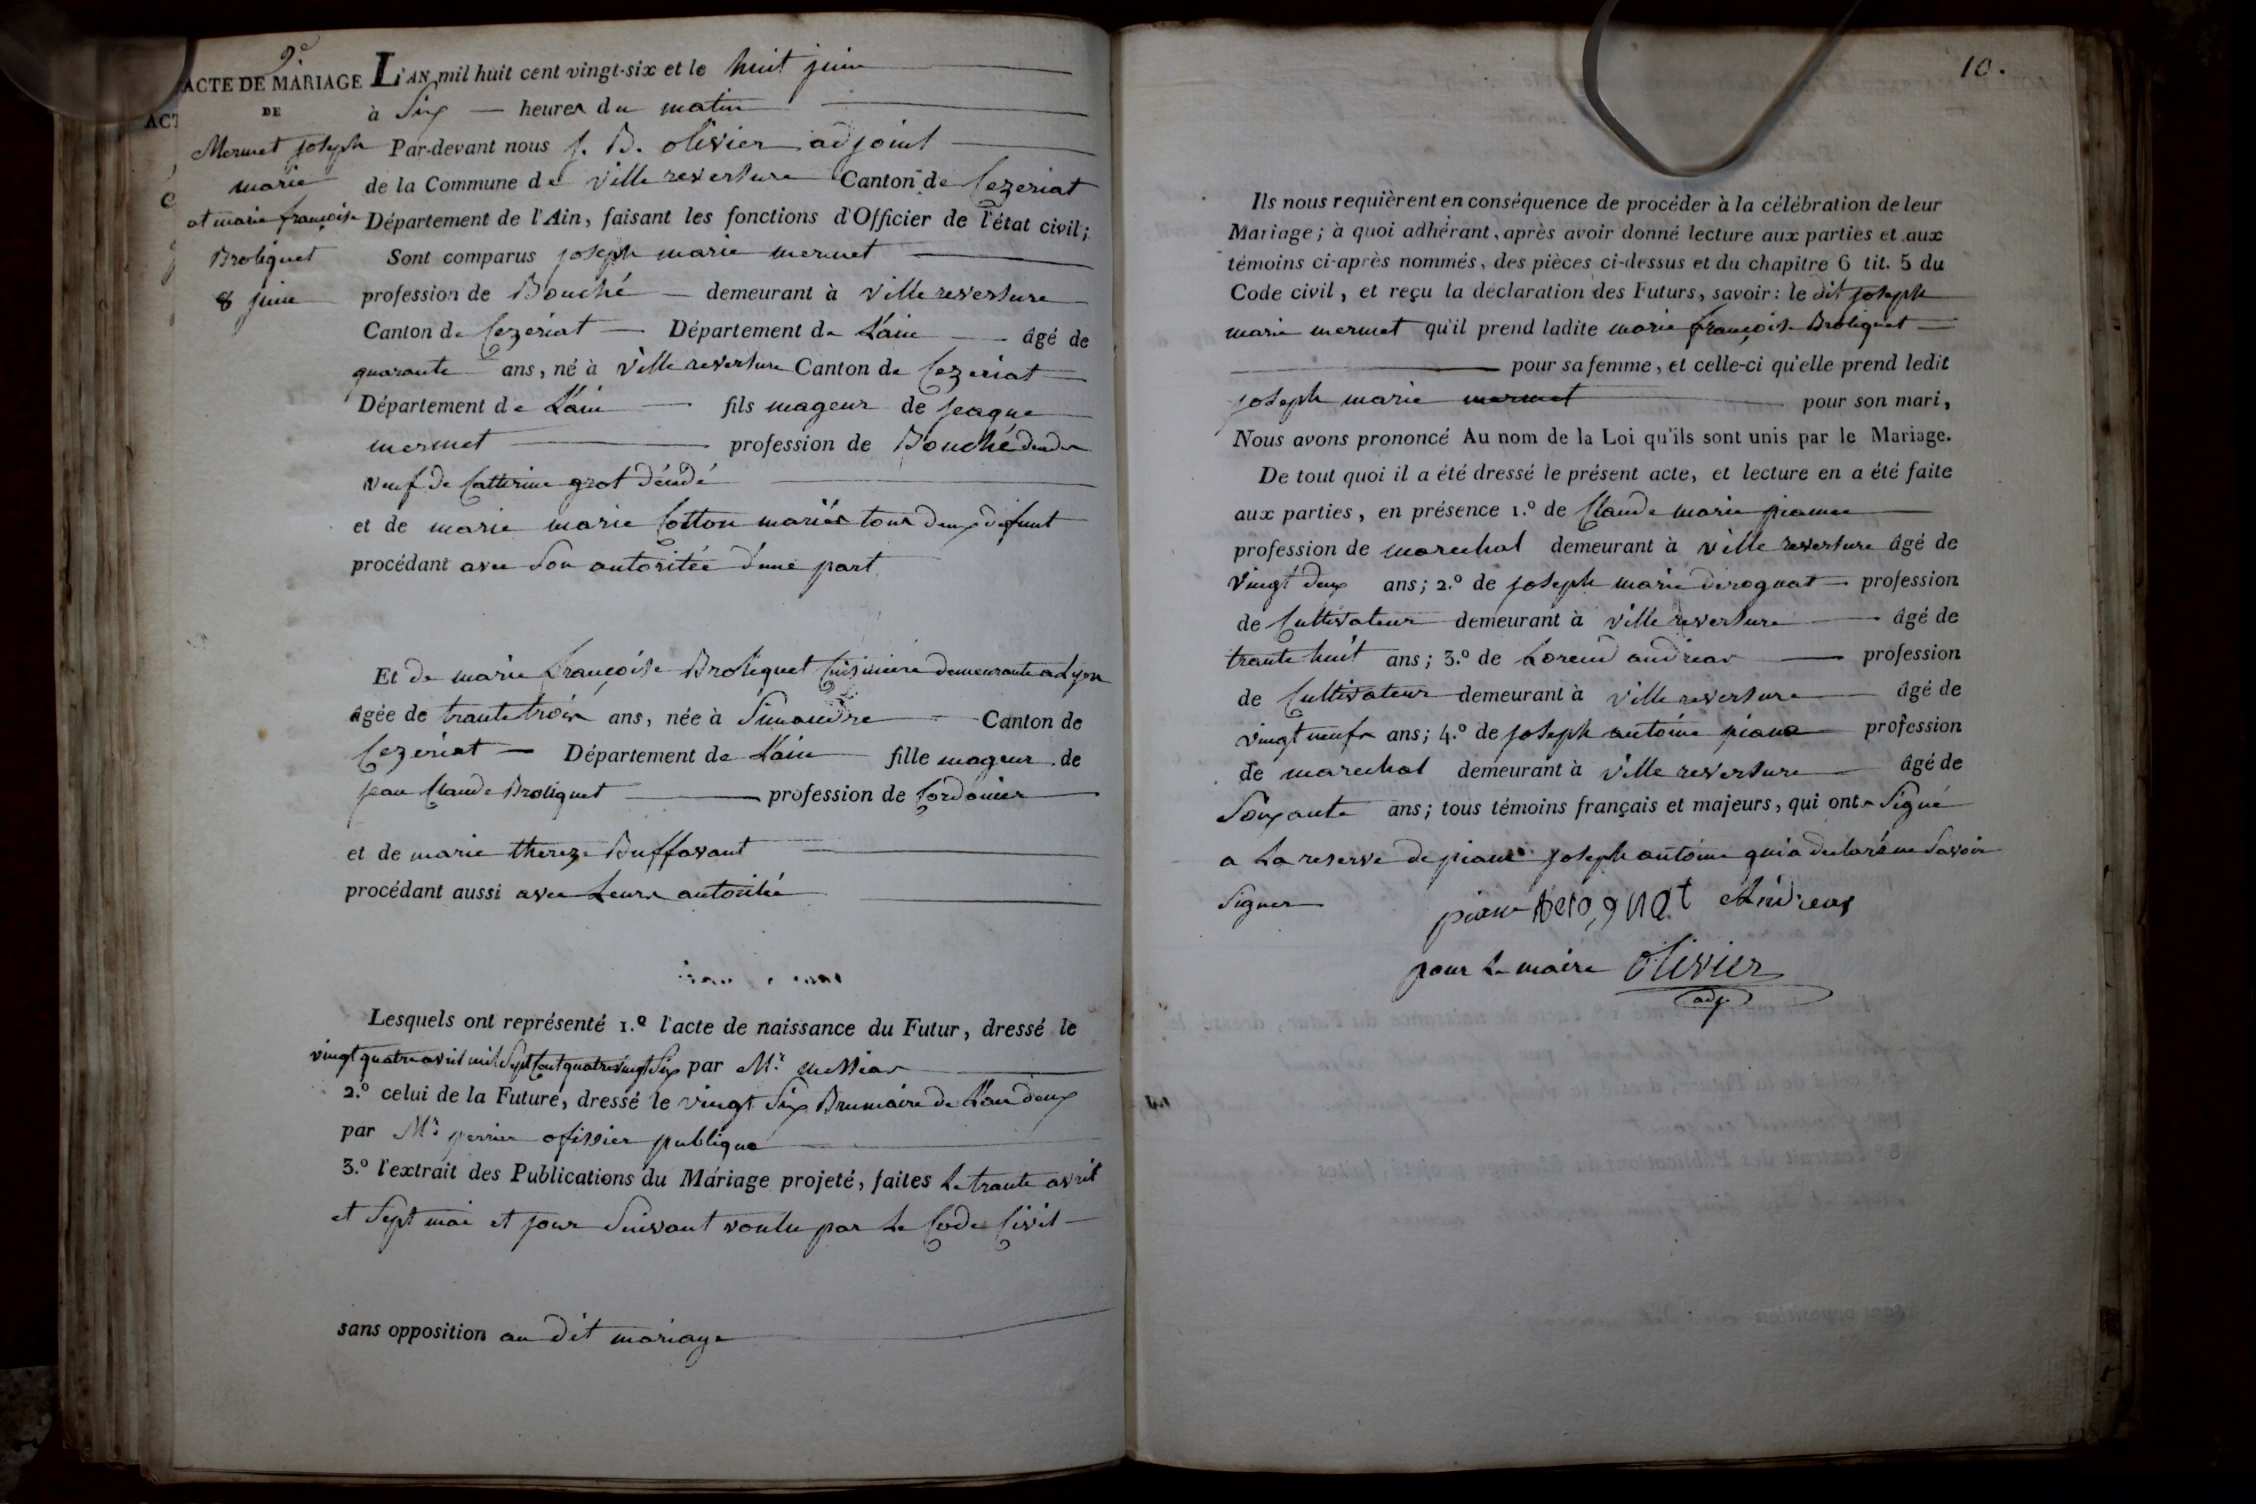 9.e
ACTE DE MARIAGE
DE
Mermet joseph
marie
et marie françoise
Broliquet
8 juin
L'AN mil huit cent vingt-six et le huit juin
à Six heures du matin
Par-devant nous j. B. olivier adjoint
de la Commune de ville reversure Canton de Cezeriat
Département de l'Ain, faisant les fonctions d'Officier de l'état civil;
Sont comparus joseph marie mermet
profession de Bouché demeurant à ville reversure
Canton de Cezeriat Département de L'ain âgé de
quarante ans, né à ville reversure Canton de Cezeriat
Département de L'ain fils mageur de jeaque
mermet profession de Bouché
veuf de Catterine grot dédé
et de marie marie Cotton mariés tous deux défunt
procédant avec Son autoritée d'une part
Et de marie françoise Broliquet Cuisiniere demeurante a Lyon
âgée de trante trois ans, née à Simandre Canton de
Cezeriat Département de L'ain fille mageur de
jean Claude Broliquet profession de Cordonier
et de marie thereze Buffavant
procédant aussi avec Leurs autorité
Lesquels ont représenté 1.º l'acte de naissance du Futur, dressé le
vingt quatre avril mil Sept Cent quatre vingt Six par Mr.
2.º celui de la Future, dressé le vingt Six Brumaire de L'an deux
par Mr. perrier ofissier publique
3.º l'extrait des Publications du Mariage projeté, faites Le trante avril
et Sept mai et jour Suivant voulu par Le Code Civil
sans opposition au dit mariage
10.
Ils nous requièrent en conséquence de procéder à la célébration de leur
Mariage; à quoi adhérant, après avoir donné lecture aux parties et aux
témoins ci-après nommés, des pièces ci-dessus et du chapitre 6 tit. 5 du
Code civil, et reçu la déclaration des Futurs, savoir: le dit joseph
marie mermet qu'il prend ladite marie françoise Broliquet
pour sa femme, et celle-ci qu'elle prend ledit
joseph marie mermet pour son mari,
Nous avons prononcé Au nom de la Loi qu'ils sont unis par le Mariage.
De tout quoi il a été dressé le présent acte, et lecture en a été faite
aux parties, en présence 1.º de Claude marie
profession de marechal demeurant à ville reversure âgé de
vingt deux ans; 2.º de joseph marie derognat profession
de Cultivateur demeurant à ville reversure âgé de
trante huit ans; 3.º de Loreud andreas profession
de Cultivateur demeurant à ville reversure âgé de
vingt neufs ans; 4.º de joseph antoine piane profession
de marechal demeurant à ville reversure âgé de
Soixante ans; tous témoins français et majeurs, qui ont Signé
a La reserve de piane joseph antoine qui a declaré ne Savoir
Signer
piane Derognat Andreas
pour Le maire Olivier
adj.